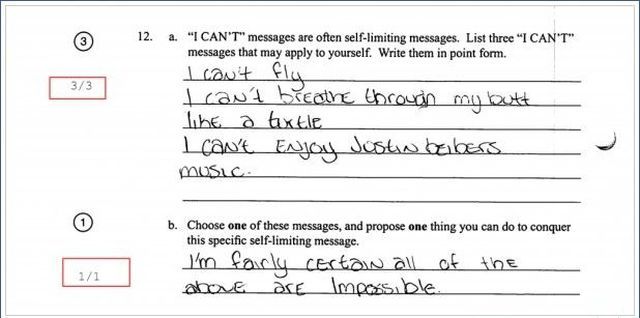 3
12. a. "I CAN'T" messages are often self-limiting messages. List three "I CAN'T"
messages that may apply to yourself. Write them in point form.
3/3
I can't fly
I can't breathe through my butt
like a turtle
I can't Enjoy Justin beibers
music.
1
b. Choose one of these messages, and propose one thing you can do to conquer
this specific self-limiting message.
1/1
I'm fairly certain all of the
above are Impossible.